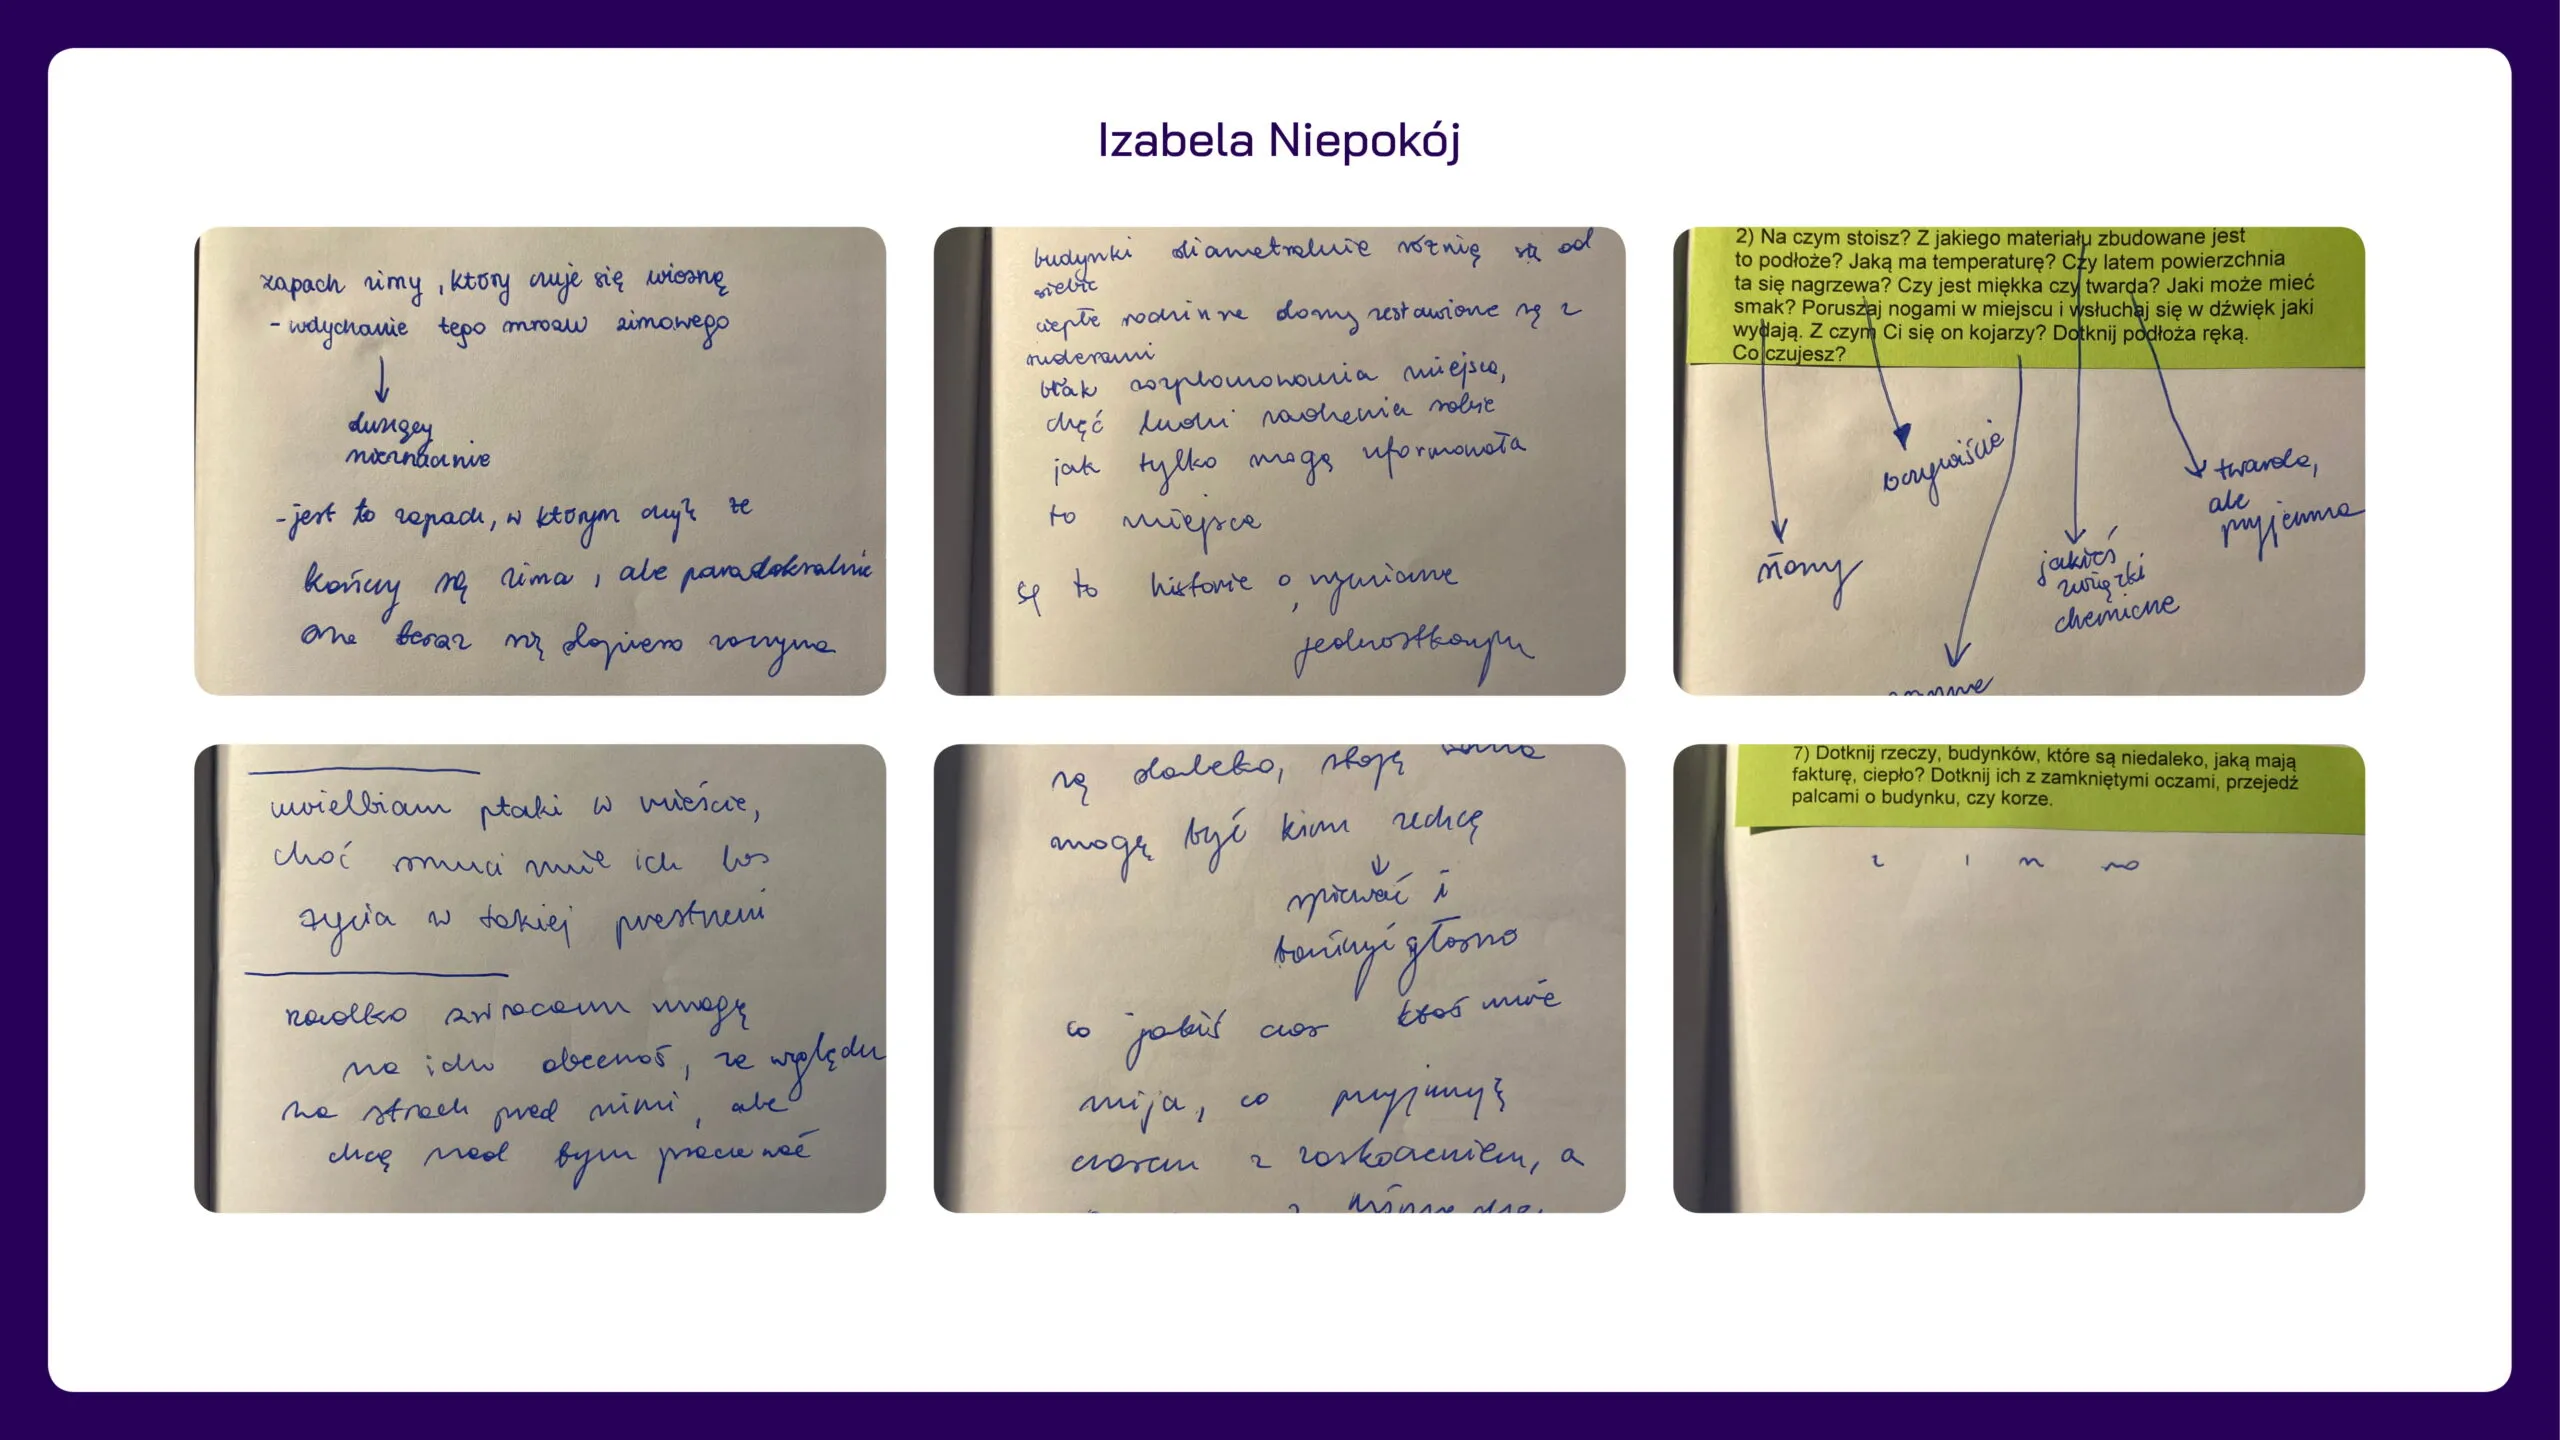 Izabela Niepokój
zapach zimy, który czuje się wiosną
- wdychanie tego mrozu zimowego
duszący
nieznacznie
- jest to zapach, w którym czuję że
kończy się zima, ale paradoksalnie
ona teraz się dopiero zaczyna
budynki diametralnie różnią się od
siebie
ciepłe rodzinne domy zestawione są z
ruderami
brak rozplanowania miejsca,
chęć ludzi radzenia sobie
jak tylko mogą uformowała
to miejsce
są to historie o wymianie
2) Na czym stoisz? Z jakiego materiału zbudowane jest
to podłoże? Jaką ma temperaturę? Czy latem powierzchnia
ta się nagrzewa? Czy jest miękka czy twarda? Jaki może mieć
smak? Poruszaj nogami w miejscu i wsłuchaj się w dźwięk jaki
wydają. Z czym Ci się on kojarzy? Dotknij podłoża ręką.
Co czujesz?
oczywiście
twarda,
ale
przyjemna
słony
jakieś
związki
chemiczne
uwielbiam ptaki w mieście,
choć smuci mnie ich los
życia w takiej przestrzeni
rzadko zwracam uwagę
na ich obecność, ze względu
na strach przed nimi, ale
chcę nad tym pracować
są daleko, stoję
mogę być kim zechcę
śpiewać i
tańczyć głośno
co jakiś czas ktoś mnie
mija, co przyjmuję
czasem z zaskoczeniem, a
7) Dotknij rzeczy, budynków, które są niedaleko, jaką mają
fakturę, ciepło? Dotknij ich z zamkniętymi oczami, przejedź
palcami o budynku, czy korze.
z i m no